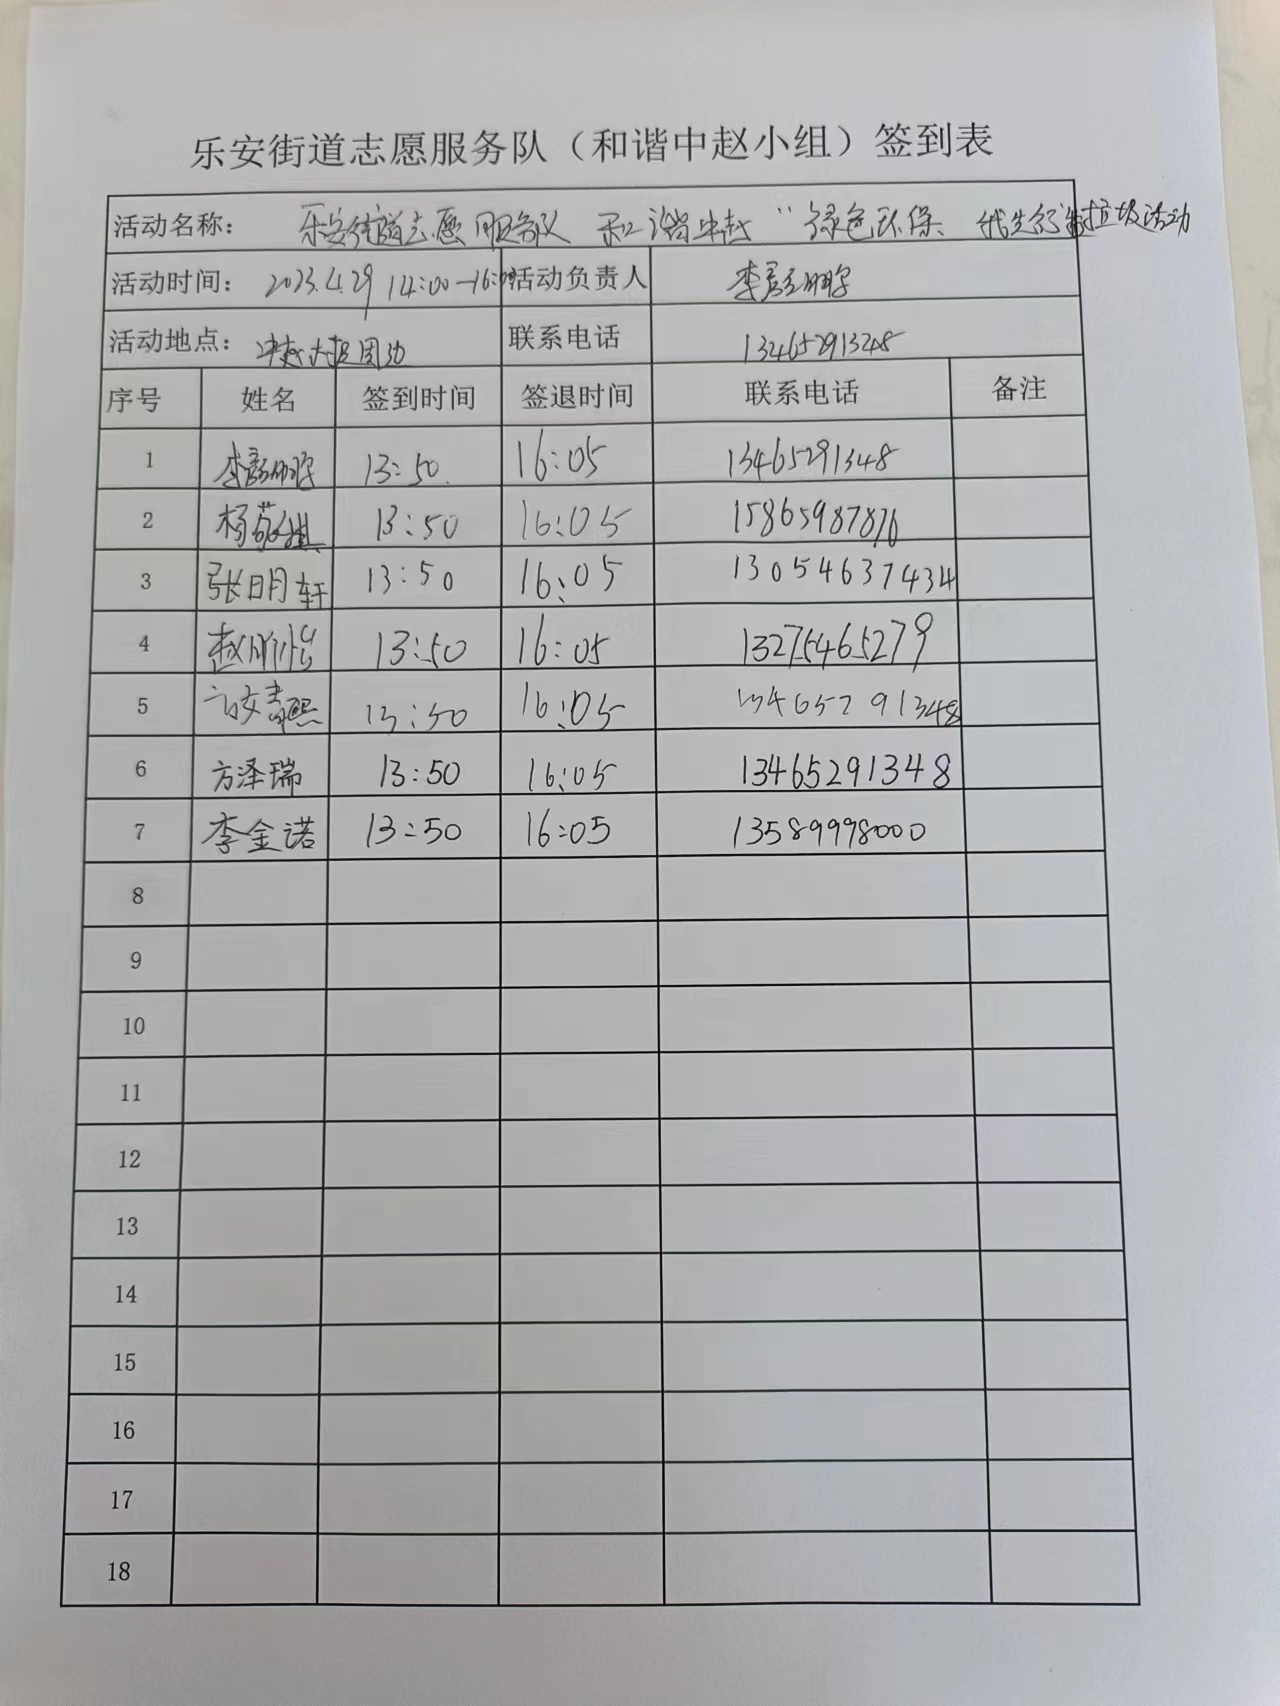 乐安街道志愿服务队（和谐中赵小组）签到表
活动名称： 乐安街道志愿服务队 和谐中赵 “绿色环保 我先行”捡垃圾活动
活动时间： 2023.4.29 14:00-16:00 活动负责人 李
活动地点： 中赵 周边 联系电话 13465291348
序号 姓名 签到时间 签退时间 联系电话 备注
1 李 13:50 16:05 13465291348
2 杨敬 13:50 16:05 15865987876
3 张明轩 13:50 16:05 13054637434
4 赵 13:50 16:05 13275465279
5 13:50 16:05 13465291348
6 方泽瑞 13:50 16:05 13465291348
7 李金诺 13:50 16:05 13589998000
8
9
10
11
12
13
14
15
16
17
18